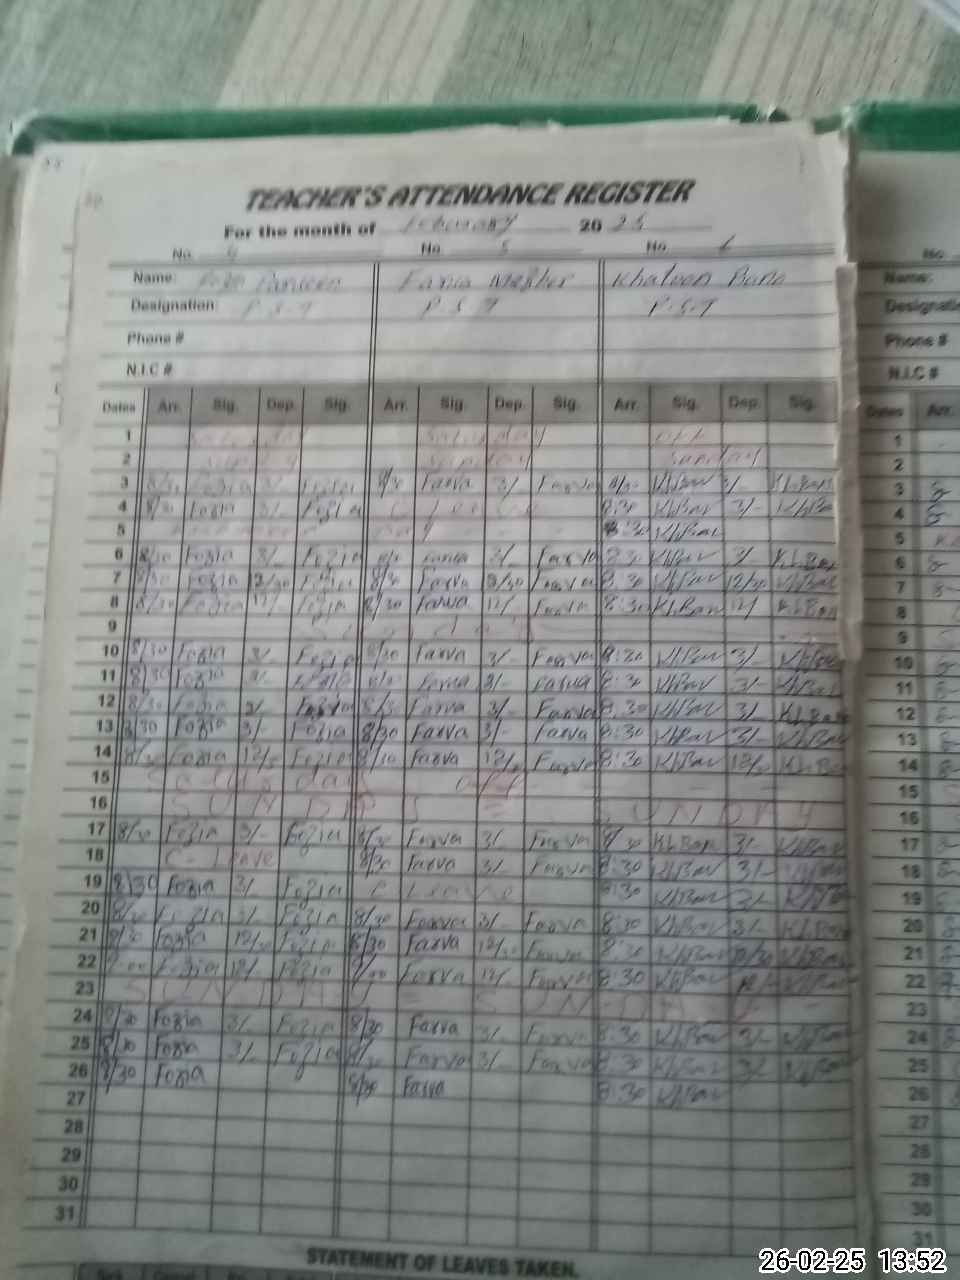 TEACHER'S ATTENDANCE REGISTER
For the month of February 20 25
No. 4 No. 5 No. 6
Name: Khatoon Bano Name:
Designation: P.S.T P.S.T P.S.T
Phone # Phone #
N.I.C # N.I.C #
Dates Arr. Sig. Dep. Sig. Arr. Sig. Dep. Sig. Arr. Sig. Dep. Sig. Dates Arr.
1 Saturday Saturday off 1
2 Sunday Sunday Sunday 2
3 8/30 Fozia 3/- Fozia 8/30 Farva 3/- Farva 8/30 Kh.Bano 3/- Kh.Bano 3
4 8/30 Fozia 3/- Fozia C Leave 8:30 Kh.Bano 3/- Kh.Bano 4
5 8:30 Kh.Bano 5
6 8/30 Fozia 3/- Fozia Farva 3/- Farva 8:30 Kh.Bano 3/- Kh.Bano 6
7 8/30 Fozia 12/30 Fozia 8/30 Farva Farva 8:30 Kh.Bano 12/30 Kh.Bano 7
8 8/30 Fozia 12/- Fozia 8/30 Farva 12/- Farva 8:30 Kh.Bano 12/ Kh.Bano 8
9 Sunday 9
10 8/30 Fozia 3/- Fozia 8/30 Farva 3/- Farva 8:30 Kh.Bano 3/- Kh.Bano 10
11 8/30 Fozia 3/- Fozia Farva 3/- Farva 8:30 Kh.Bano 3/- Kh.Bano 11
12 8/30 Fozia 3/- Fozia 8/30 Farva 3/- Farva 8:30 Kh.Bano 3/- Kh.Bano 12
13 8/30 Fozia 3/- Fozia 8/30 Farva 3/- Farva 8:30 Kh.Bano 3/- Kh.Bano 13
14 8/30 Fozia Fozia 8/30 Farva Farva 8:30 Kh.Bano Kh.Bano 14
15 Saturday off 15
16 SUNDAY SUNDAY 16
17 8/30 Fozia 3/- Fozia 8/30 Farva 3/- Farva 8/30 Kh.Bano 3/- Kh.Bano 17
18 C- Leave 8/30 Farva 3/- Farva 8:30 Kh.Bano 3/- Kh.Bano 18
19 8/30 Fozia 3/- Fozia C Leave 8:30 Kh.Bano 3/- Kh.Bano 19
20 8/30 Fozia 3/- Fozia 8/30 Farva 3/- Farva 8:30 Kh.Bano 3/- Kh.Bano 20
21 8/30 Fozia 12/30 Fozia 8/30 Farva 12/30 Farva 8:30 Kh.Bano Kh.Bano 21
22 9-00 Fozia 12/- Fozia 9/00 Farva 12/- Farva 8:30 Kh.Bano Kh.Bano 22
23 SUNDAY = SUNDAY 23
24 8/30 Fozia 3/- Fozia 8/30 Farva 3/- Farva 8:30 Kh.Bano 3/- Kh.Bano 24
25 8/30 Fozia 3/- Fozia 8/30 Farva 3/- Farva 8:30 Kh.Bano 3/- Kh.Bano 25
26 8/30 Fozia 8/30 Farva 8:30 Kh.Bano 26
27 27
28 28
29 29
30 30
31 31
STATEMENT OF LEAVES TAKEN.
26-02-25 13:52